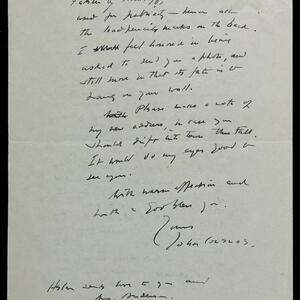 used for publicity — hence all
the lead pencil marks on the back.
I feel honored in being
asked to send you a photo, and
still more in that its fate is to
hang on your wall.
Please make a note of
my new address, in case you
should slip into town this fall.
It would do my eyes good to
see you.
With warm affection and
with a God bless you.
Yours
John Cournos.
Helen sends love to you and
Mrs. Anderson.